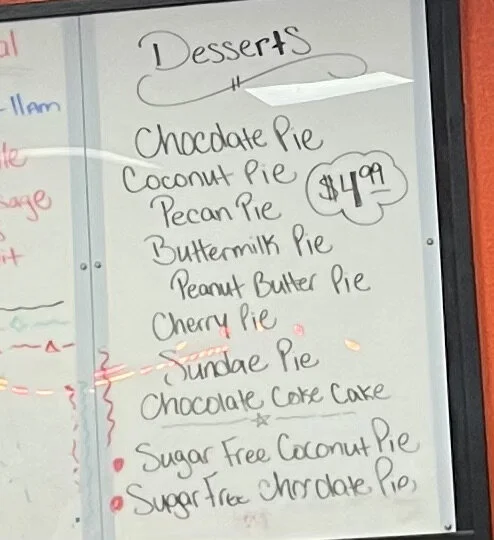 Desserts
Chocolate Pie
Coconut Pie
$4.99
Pecan Pie
Buttermilk Pie
Peanut Butter Pie
Cherry Pie
Sundae Pie
Chocolate Coke Cake
Sugar Free Coconut Pie
Sugar Free Chocolate Pie
al
-11am
le
sage
it